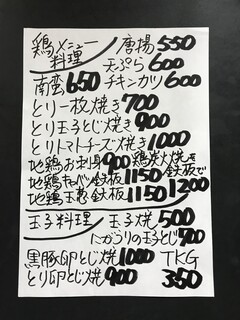 鶏メニュー料理 唐揚 550
天ぷら 600
南蛮 650 チキンカツ 600
とり一枚焼き 700
とり玉子とじ焼き 900
とりトマトチーズ焼き 1000
地鶏お刺身 900 鶏炭火焼を鉄板で 1200
地鶏キャベツ鉄板 1150
地鶏玉葱鉄板 1150
玉子料理 玉子焼 500
にがうりの玉子とじ 700
黒豚卵とじ焼 1000 TKG
とり卵とじ焼 900 350